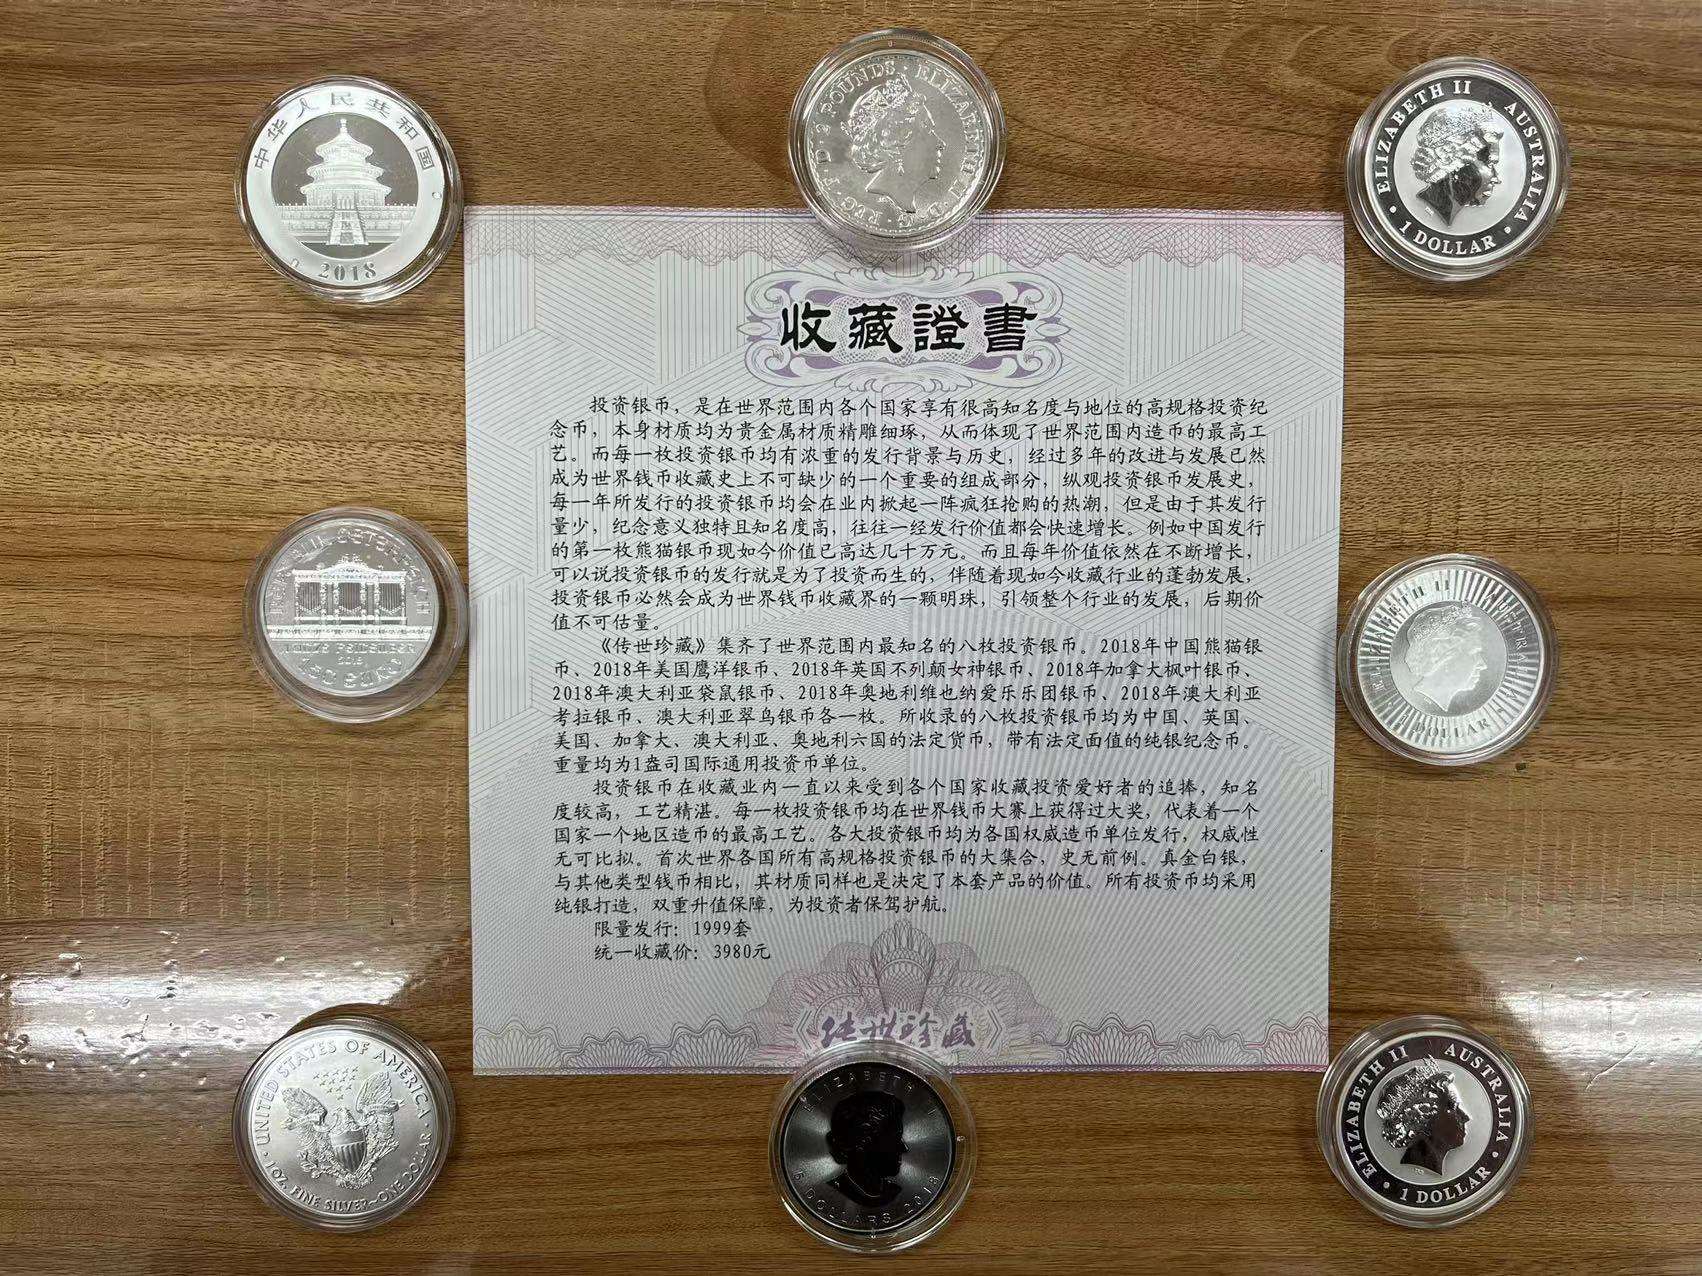 中华人民共和国
2018
ELIZABETH II · D · G · REG · F · D · 2 POUNDS
ELIZABETH II AUSTRALIA
1 DOLLAR
收藏證書
投资银币，是在世界范围内各个国家享有很高知名度与地位的高规格投资纪
念币，本身材质均为贵金属材质精雕细琢，从而体现了世界范围内造币的最高工
艺。而每一枚投资银币均有浓重的发行背景与历史，经过多年的改进与发展已然
成为世界钱币收藏史上不可缺少的一个重要的组成部分，纵观投资银币发展史，
每一年所发行的投资银币均会在业内掀起一阵疯狂抢购的热潮，但是由于其发行
量少，纪念意义独特且知名度高，往往一经发行价值都会快速增长。例如中国发行
的第一枚熊猫银币现如今价值已高达几十万元。而且每年价值依然在不断增长，
可以说投资银币的发行就是为了投资而生的，伴随着现如今收藏行业的蓬勃发展，
投资银币必然会成为世界钱币收藏界的一颗明珠，引领整个行业的发展，后期价
值不可估量。
《传世珍藏》集齐了世界范围内最知名的八枚投资银币。2018年中国熊猫银
币、2018年美国鹰洋银币、2018年英国不列颠女神银币、2018年加拿大枫叶银币、
2018年澳大利亚袋鼠银币、2018年奥地利维也纳爱乐乐团银币、2018年澳大利亚
考拉银币、澳大利亚翠鸟银币各一枚。所收录的八枚投资银币均为中国、英国、
美国、加拿大、澳大利亚、奥地利六国的法定货币，带有法定面值的纯银纪念币。
重量均为1盎司国际通用投资币单位。
投资银币在收藏业内一直以来受到各个国家收藏投资爱好者的追捧，知名
度较高，工艺精湛。每一枚投资银币均在世界钱币大赛上获得过大奖，代表着一个
国家一个地区造币的最高工艺。各大投资银币均为各国权威造币单位发行，权威性
无可比拟。首次世界各国所有高规格投资银币的大集合，史无前例。真金白银，
与其他类型钱币相比，其材质同样也是决定了本套产品的价值。所有投资币均采用
纯银打造，双重升值保障，为投资者保驾护航。
限量发行：1999套
统一收藏价：3980元
《传世珍藏》
REPUBLIK OESTERREICH
1 UNZE FEINSILBER
2018
1.50 EURO
ELIZABETH II AUSTRALIA
1 DOLLAR
UNITED STATES OF AMERICA
1 OZ. FINE SILVER~ONE DOLLAR
ELIZABETH II
5 DOLLARS 2018
ELIZABETH II AUSTRALIA
1 DOLLAR